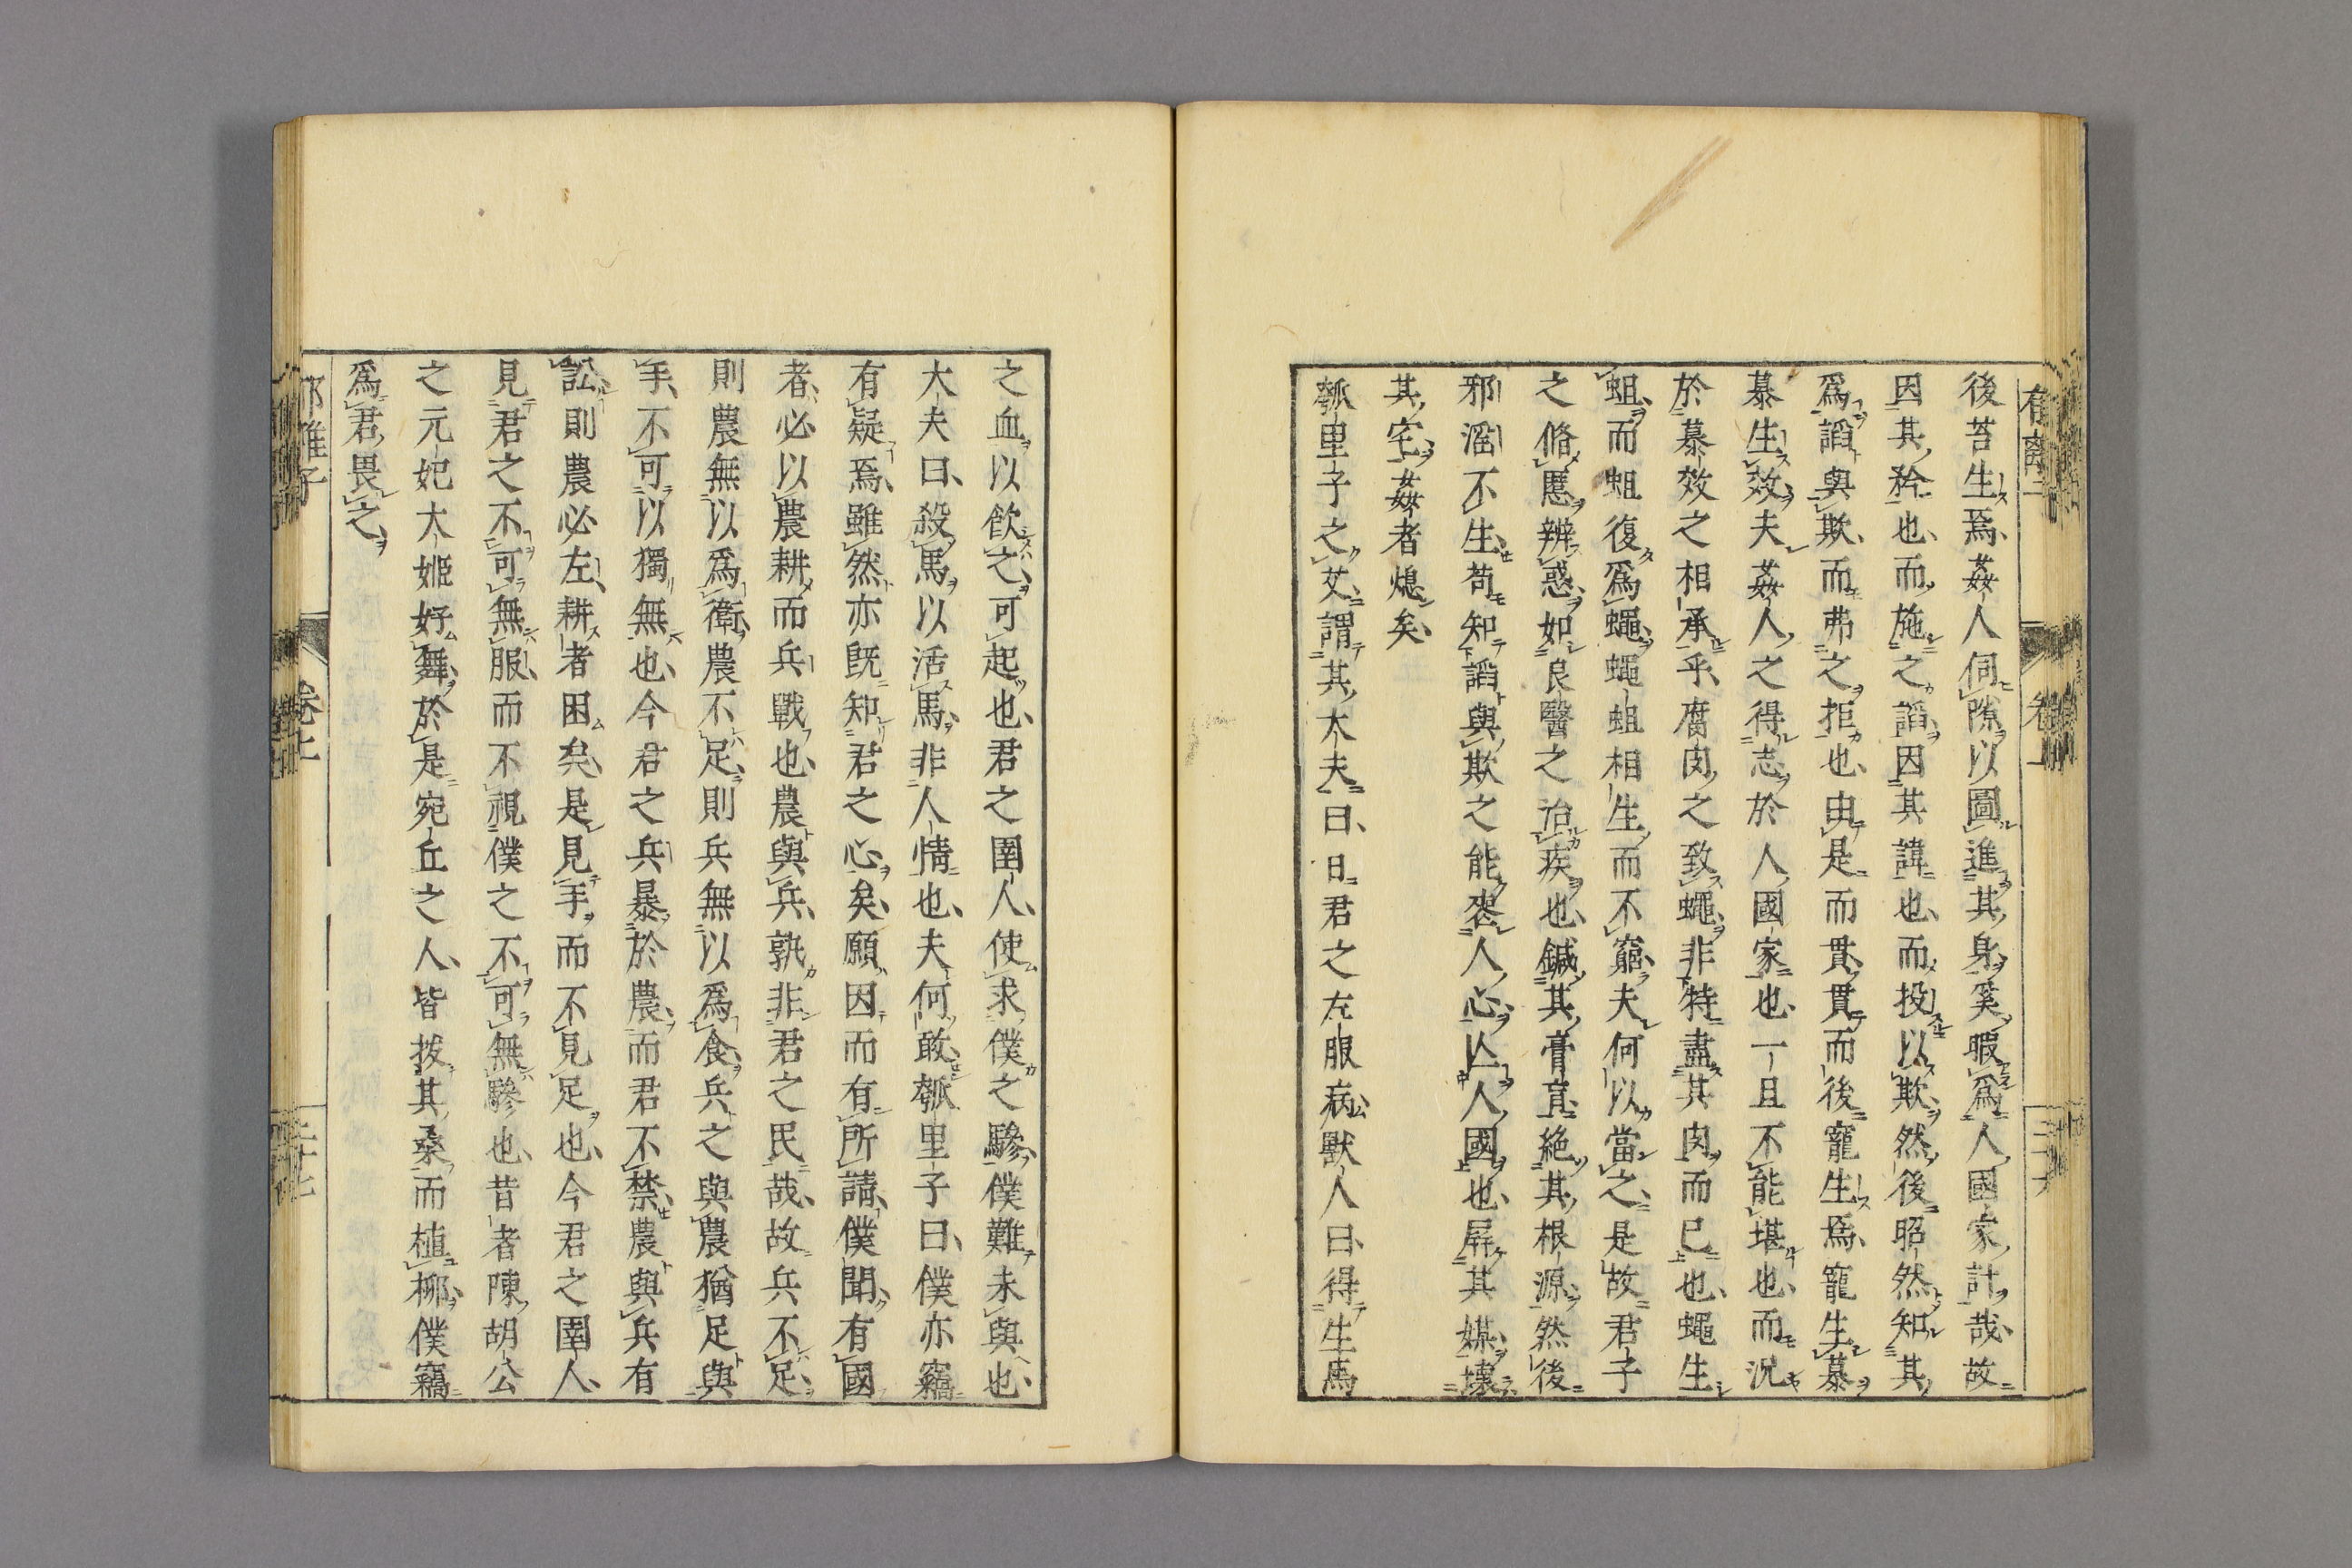 後荅生焉姦人伺隙以圖進其身奚暇爲人國家計哉故
因其矜也而施之謟因其諱也而投以欺然後昭然知其
爲謟與欺而弗之拒也由是而貫貫而後寵生焉寵生慕
慕生效夫姦人之得志於人國家也一且不能堪也而况
於慕效之相承乎腐肉之致蠅非特盡其肉而已也蠅生
蛆而蛆復爲蠅蠅蛆相生而不窮夫何以當之是故君子
之脩慝辨惑如良醫之治疾也鍼其膏肓絶其根源然後
邪滛不生苟知謟與欺之能喪人心亾人國也屏其媒壞
其宅姦者熄矣
瓠里子之艾謂其大夫曰日君之左服病獸人曰得生馬
之血以飲之可起也君之圉人使求僕之驂僕難未與也
大夫曰殺馬以活馬非人情也夫何敢瓠里子曰僕亦竊
有疑焉雖然亦既知君之心矣願因而有所請僕聞有國
者必以農耕而兵戰也農與兵孰非君之民哉故兵不足
則農無以爲衛農不足則兵無以爲食兵之與農猶足與
手不可以獨無也今君之兵暴於農而君不禁農與兵有
訟則農必左耕者困矣是見手而不見足也今君之圉人
見君之不可無服而不視僕之不可無驂也昔者陳胡公
之元妃大姬好舞於是宛丘之人皆拔其桑而植柳僕竊
爲君畏之
卷上
二十七